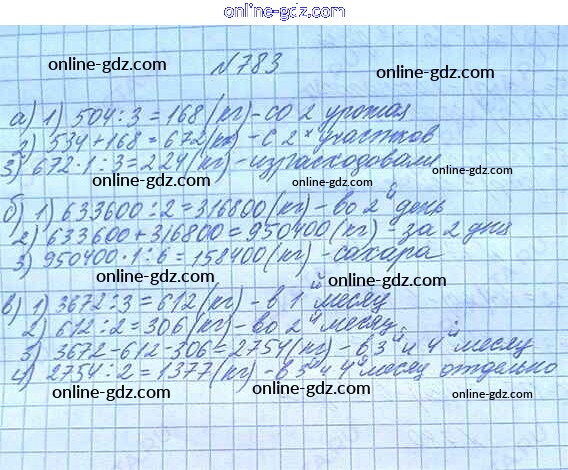 online-gdz.com
online-gdz.com online-gdz.com online-gdz.com
№783
а) 1) 504:3=168(кг)-со 2 урожая
2) 534+168=672(кг)-с 2х участков
3) 672·1:3=224(кг)-израсходовали
online-gdz.com online-gdz.com online-gdz.com
б) 1) 633600:2=316800(кг)-во 2й день
2) 633600+316800=950400(кг)-за 2 дня
3) 950400·1:6=158400(кг)-сахара
online-gdz.com online-gdz.com online-gdz.com
в) 1) 3672:3=612(кг)-в 1й месяц
2) 612:2=306(кг)-во 2й месяц
3) 3672-612-306=2754(кг)-в 3й и 4й месяц
4) 2754:2=1377(кг)-в 3й и 4й месяц отдельно
online-gdz.com online-gdz.com online-gdz.com